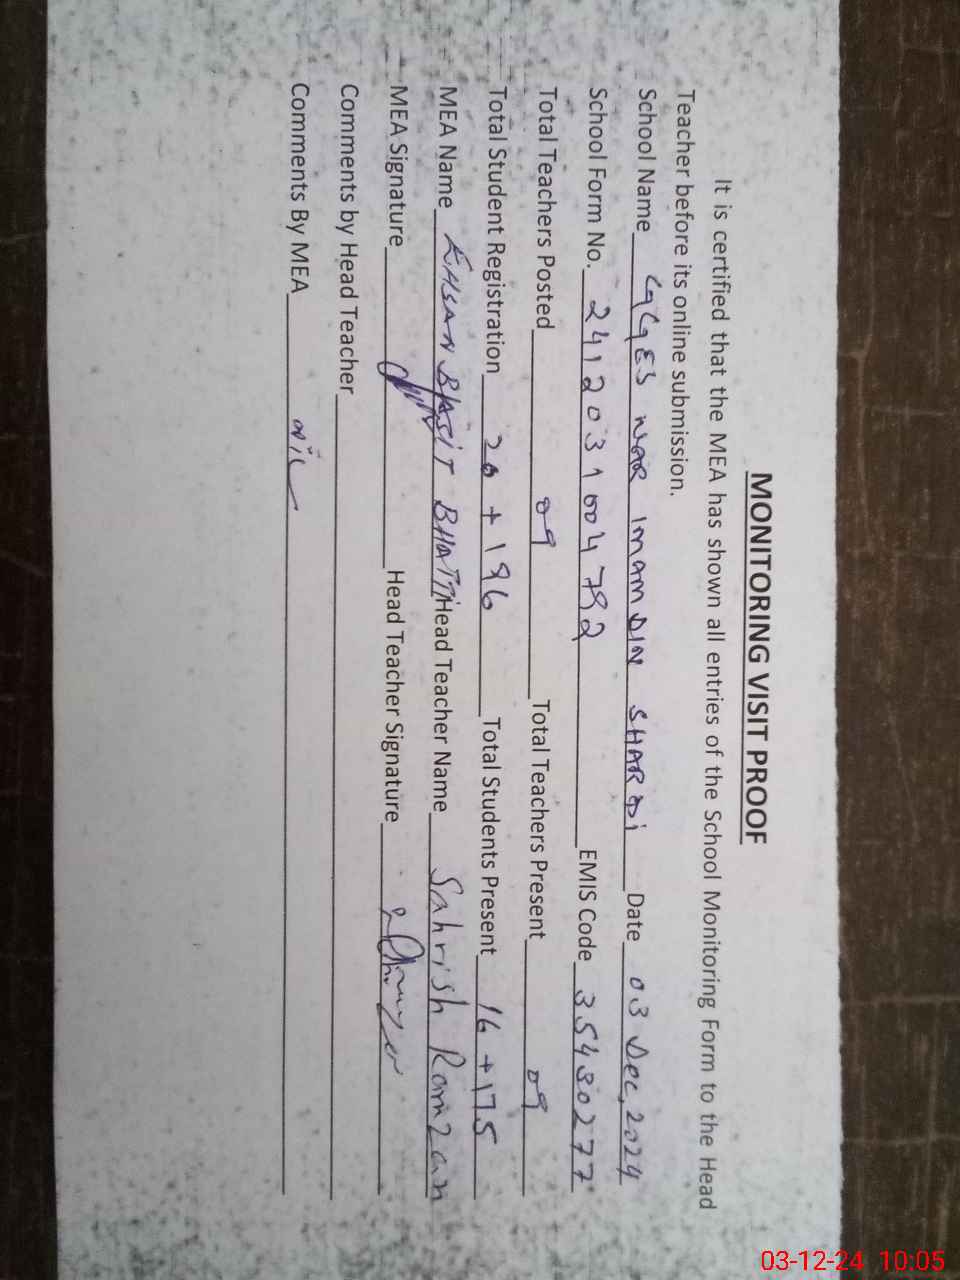 MONITORING VISIT PROOF
It is certified that the MEA has shown all entries of the School Monitoring Form to the Head
Teacher before its online submission.
School Name GGES NAR IMAM DIN SHARQI Date 03 Dec, 2024
School Form No. 2412031004792 EMIS Code 35430277
Total Teachers Posted 09 Total Teachers Present 09
Total Student Registration 20 + 196 Total Students Present 16 + 175
MEA Name EHSAN BASIT BHATTI Head Teacher Name Sahrish Ramzan
MEA Signature Head Teacher Signature
Comments by Head Teacher
Comments By MEA Nil
03-12-24 10:05